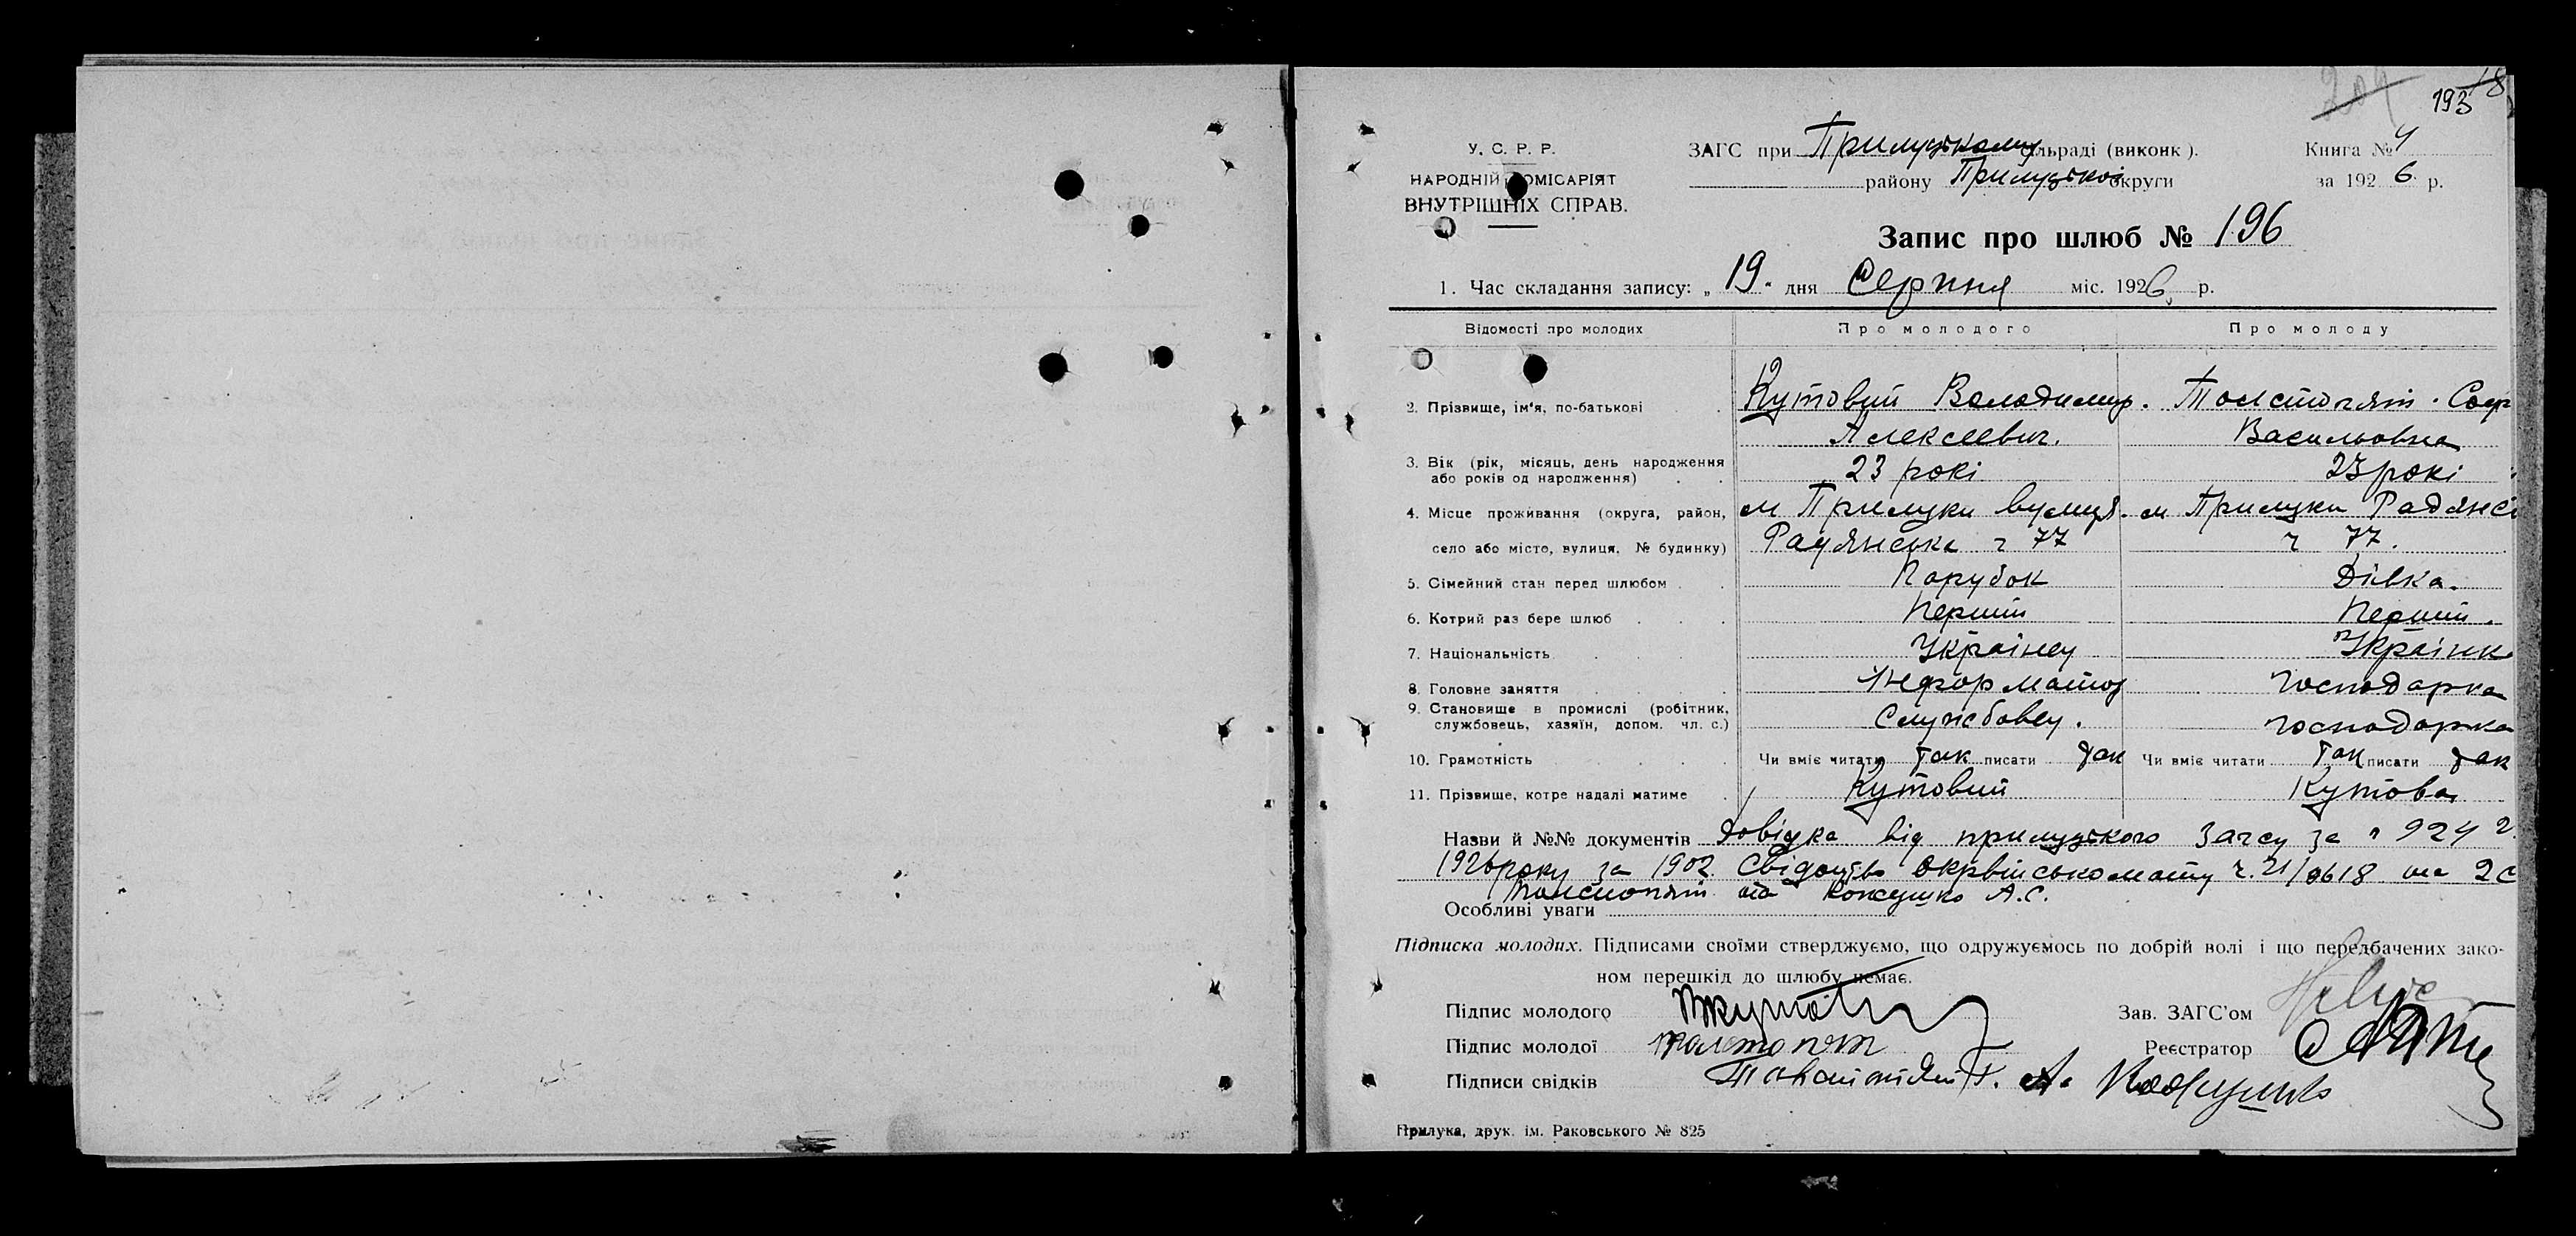 204 193 18
У. С. Р. Р.
НАРОДНІЙ КОМІСАРІЯТ
ВНУТРІШНІХ СПРАВ.
ЗАГС при Прилуцькому сільраді (виконк).
району Прилуцької округи
Книга № 4
за 1926 р.
Запис про шлюб № 196
1. Час складання запису: „ 19 " дня Серпня міс. 1926 р.
Відомості про молодих Про молодого Про молоду
2. Прізвище, ім'я, по-батькові Кутовий Володимир. Толстопят. Соф
Алексеевич. Васильовна
3. Вік (рік, місяць, день народження
або років од народження) 23 рокі 23 рокі
4. Місце проживання (округа, район, м Прилуки вулиця. м Прилуки Радянсь
село або місто, вулиця, № будинку) Радянська ч 77 ч 77.
5. Сімейний стан перед шлюбом Парубок Дівка.
6. Котрий раз бере шлюб Перший Перший.
7. Національність Українец Українк
8. Головне заняття Інформатор господарка
9. Становище в промислі (робітник,
службовець, хазяїн, допом. чл. с.) Службовец. господарка
10. Грамотність Чи вміє читати так писати так Чи вміє читати так писати так
11. Прізвище, котре надалі матиме Кутовий Кутова
Назви й №№ документів Довідка від прилуцького Загсу за 924
1926 року за 1902 Свідоцтво Окрвійськомату ч. 21/0618
Толстопят та Кожушко А.С.
Особливі уваги
Підписка молодих. Підписами своїми стверджуємо, що одружуємось по добрій волі і що передбачених зако-
ном перешкід до шлюбу немає.
Підпис молодого ВКутов
Зав. ЗАГС'ом
Підпис молодої Толстопят
Реєстратор
Підписи свідків Т. А. Кожушко
Прилука, друк. ім. Раковського № 825